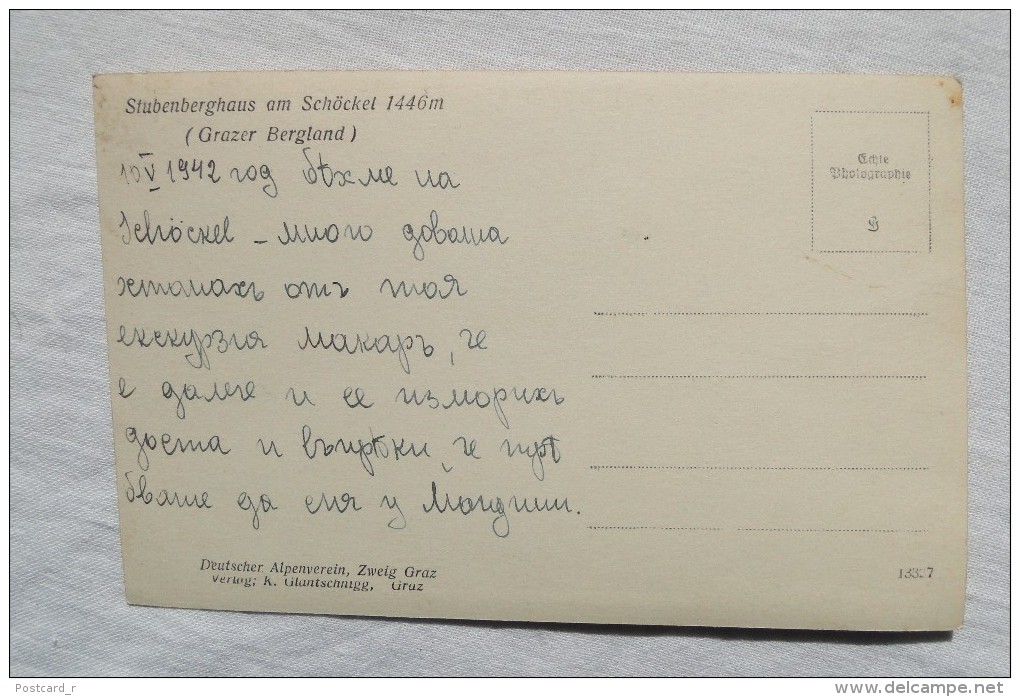 Stubenberghaus am Schöckel 1446m
(Grazer Bergland)
10 V 1942 год бѣхме на
Schöckel – много доволна
останахъ отъ тоя
екскурзия макаръ, че
е далече и се изморихъ
доста и въпрѣки, че трѣ
бваше да спя у
Echte
Photographie
Deutscher Alpenverein, Zweig Graz
Verlag; K. Glantschnigg, Graz
Postcard_r
www.delcampe.net